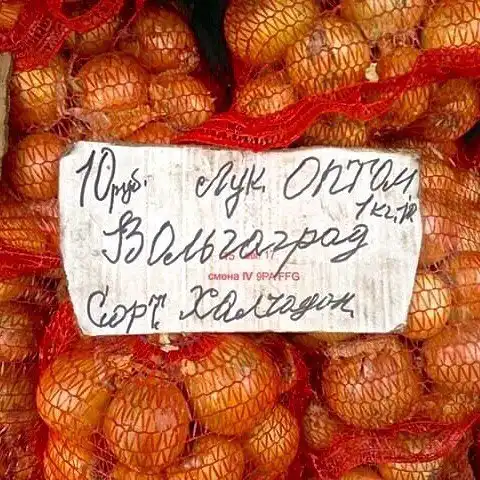 10 руб. Лук ОПТОМ
1 кг.
Волгоград
смена IV 9PA/FFG
Сорт Халчедон